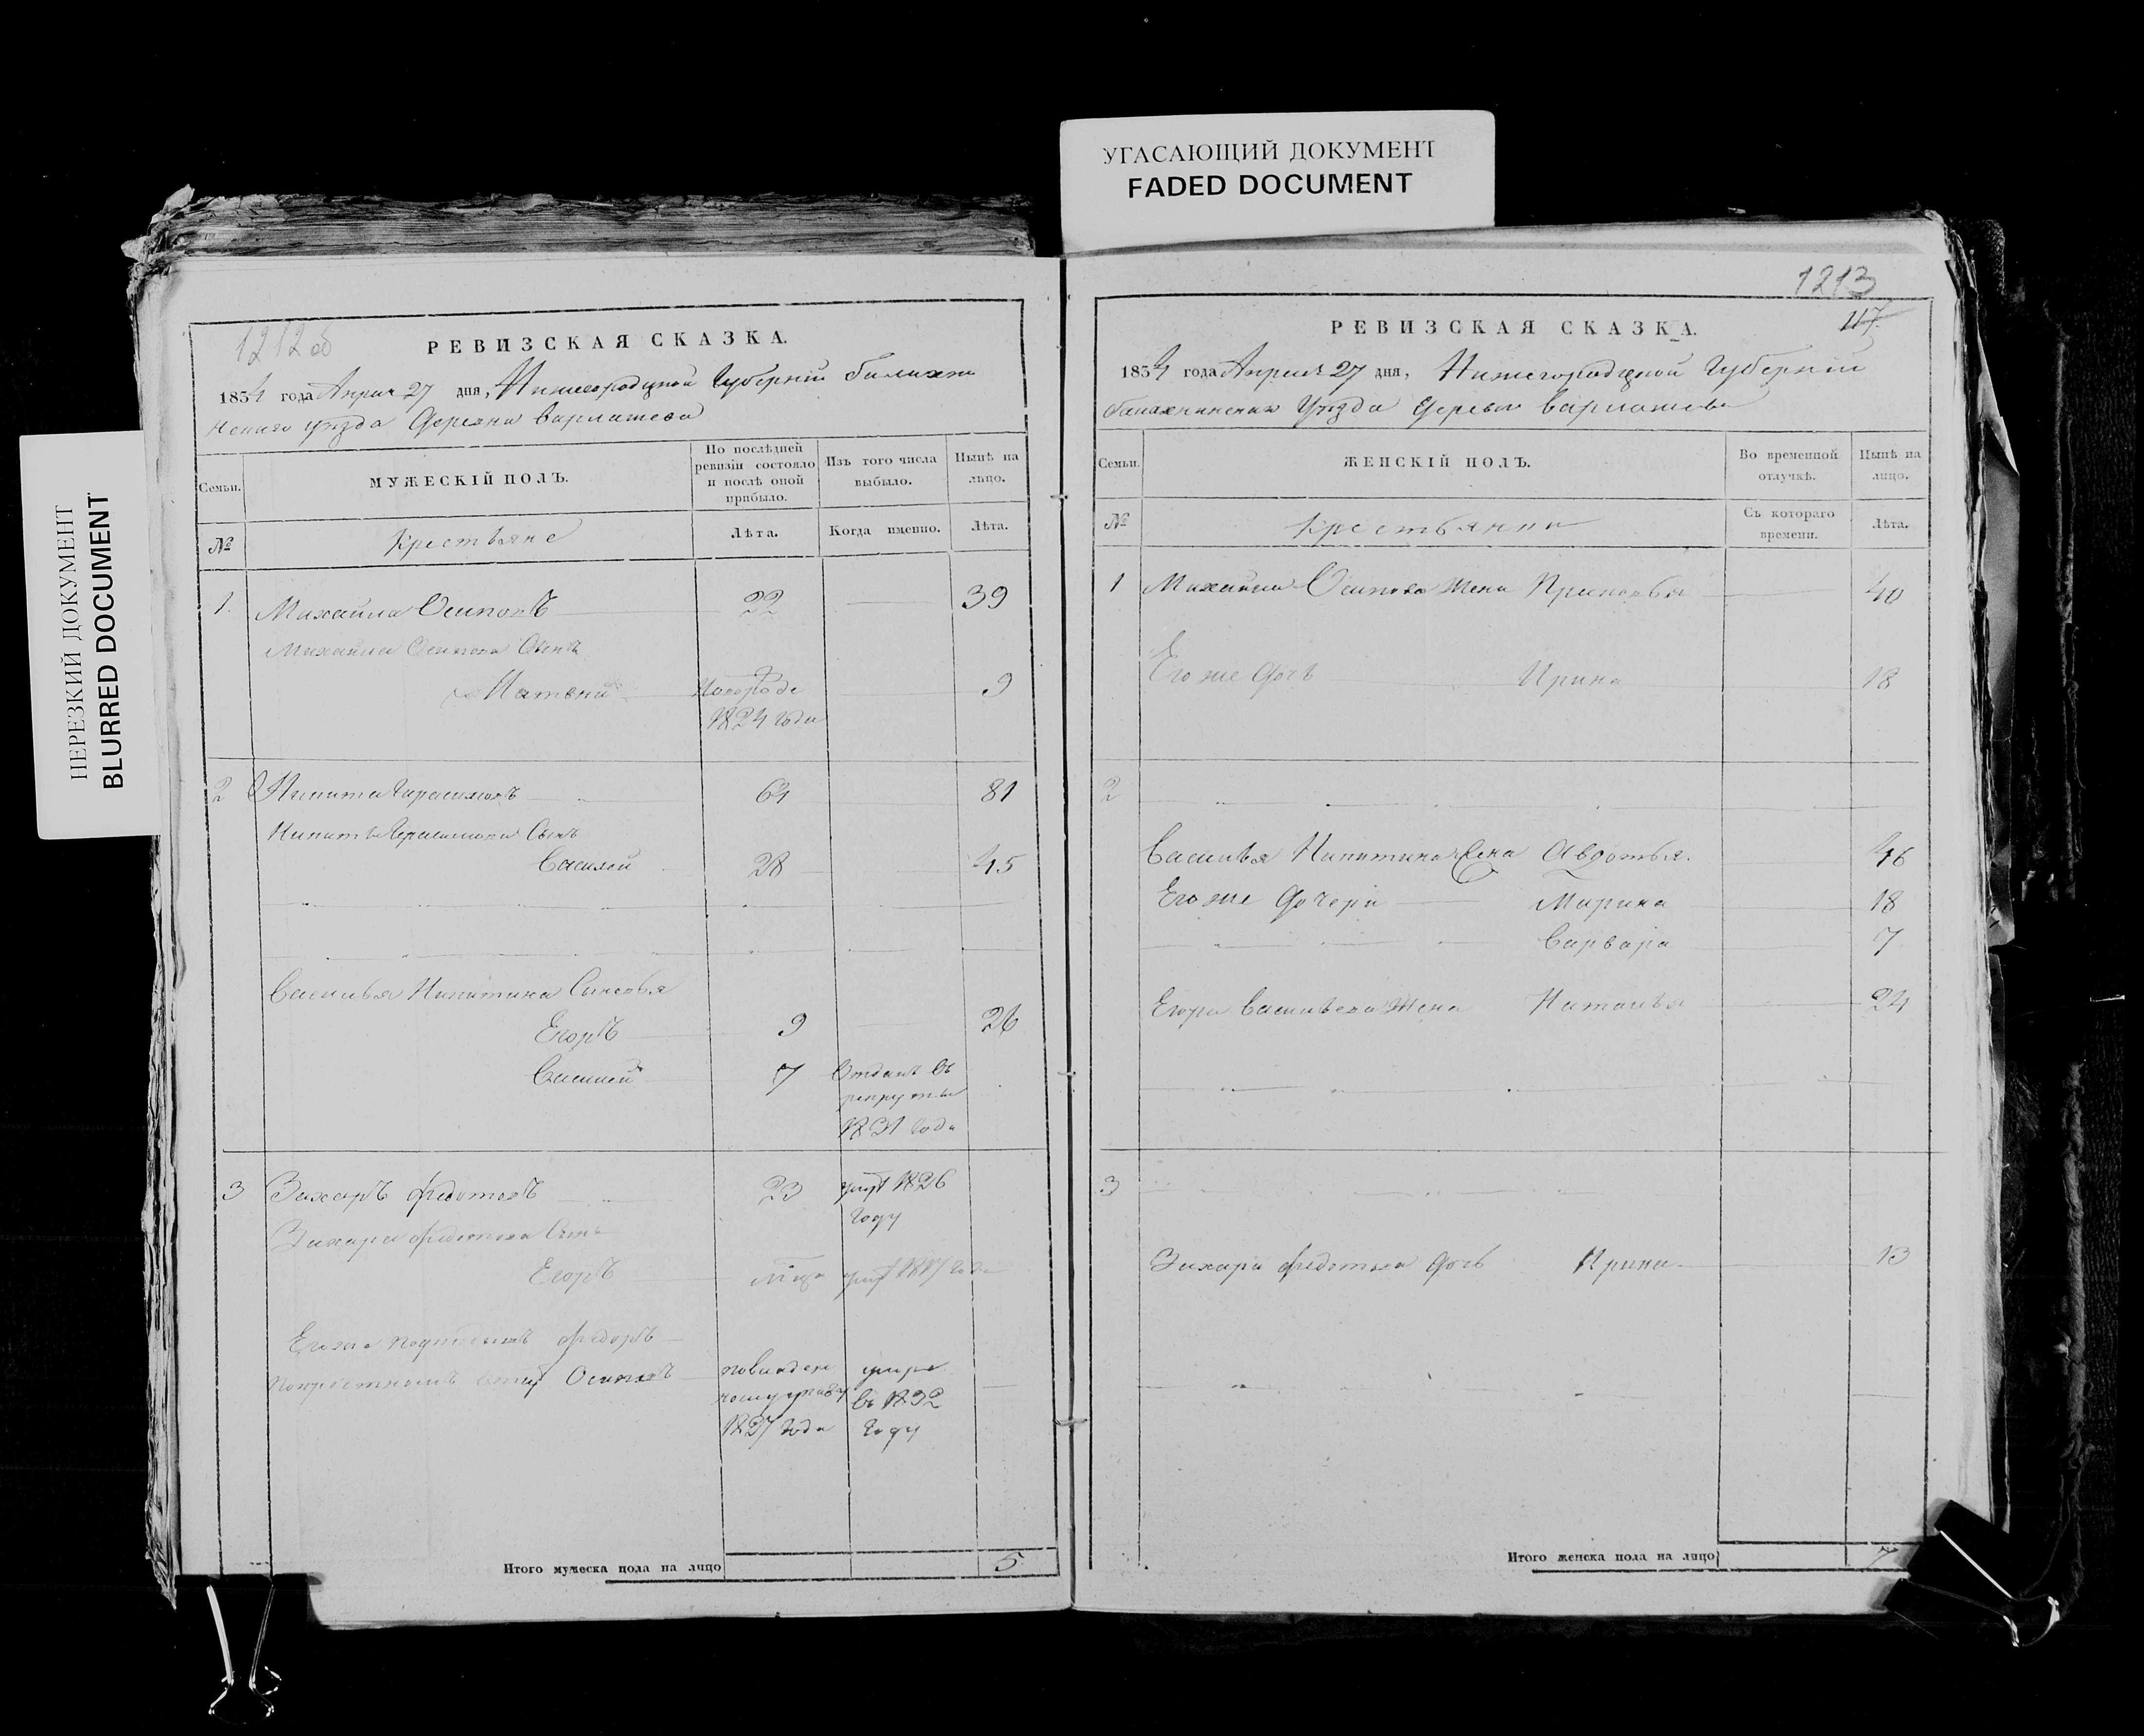 УГАСАЮЩИЙ ДОКУМЕНТ
FADED DOCUMENT
НЕРЕЗКИЙ ДОКУМЕНТ
BLURRED DOCUMENT
1212 об
РЕВИЗСКАЯ СКАЗКА.
1834 года Апреля 27 дня, Нижегородской Губернии Балахни
нскаго уезда Деревни Варлашева
Семьи. МУЖЕСКІЙ ПОЛЪ. По послѣдней ревизіи состояло и послѣ оной прибыло. Изъ того числа выбыло. Нынѣ на лицо.
№ Крестьяне Лѣта. Когда именно. Лѣта.
1. Михайла Осиповъ 22 39
Михайла Осипова Сынъ
Матвей Новорожде 9
1824 года
2 Никита Герасимовъ 64 81
Никиты Герасимова Сынъ
Василей 28 45
Василья Никитина Сыновья
Егоръ 9 26
Василей 7 Отданъ въ
рекруты
1831 года
3 Захаръ Федотовъ 23 умер 1826
году
Захара Федотова Сынъ
Егоръ умер 1817 года
Федоръ
Осиповъ
1827 года въ 1832
году
Итого мужеска пола на лицо 5
1213
117
РЕВИЗСКАЯ СКАЗКА.
1834 года Апреля 27 дня, Нижегородской Губернии
Балахнинскаго Уезда Деревни Варлашева
Семьи. ЖЕНСКІЙ ПОЛЪ. Во временной отлучкѣ. Нынѣ на лицо.
№ Крестьянки Съ котораго времени. Лѣта.
1 Михайла Осипова жена Прасковья 40
Его же дочь Ирина 18
2
Василья Никитина жена Авдотья. 46
Его же дочери Марина 18
Варвара 7
Егора Васильева жена Наталья 24
3
Захара Федотова дочь Ирина 13
Итого женска пола на лицо 7